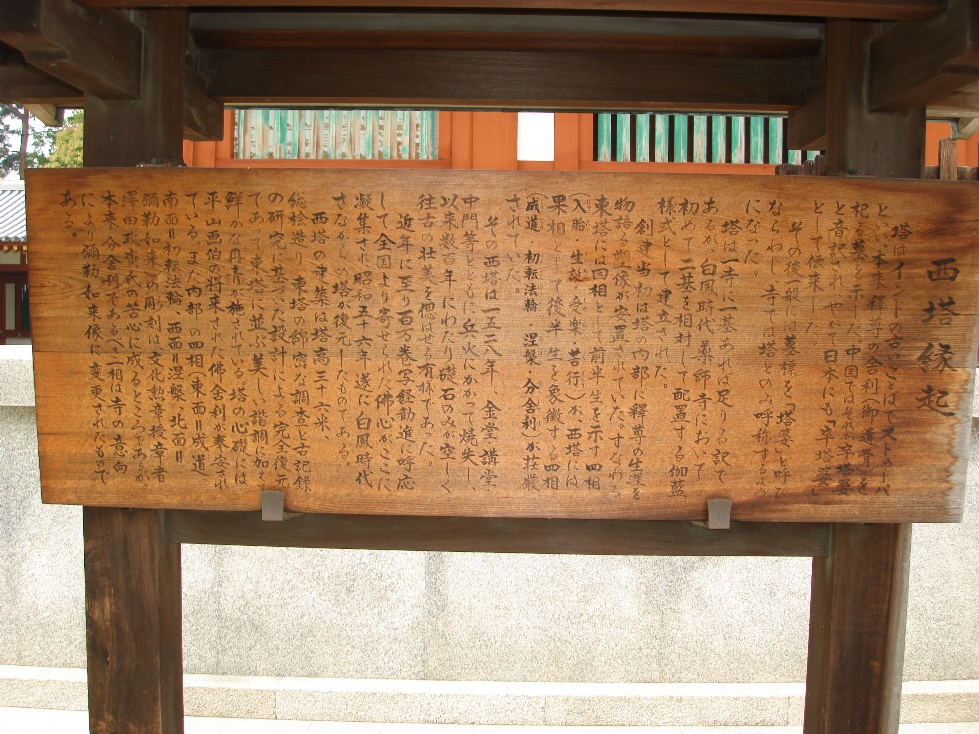 西塔縁起
塔はインドの古いことばでストゥーパ
といい本来釈尊の舎利(御遺骨)を
祀る墓を示した、中国ではそれが卒塔婆
と音記され やがて日本にも「卒塔婆」
として伝来した
その後一般には墓標を「塔婆」と呼び
ならわし 寺では塔とのみ呼称するよう
になった
塔は一寺に一基あれば足りる記で
あるが 白鳳時代 薬師寺において
初めて二基を相対して配置する伽藍
様式として建立された。
創建当初は塔の内部に釋尊の生涯を
物語る塑像が安置されていた。すなわち
東塔には因相として前半生を示す四相
(入胎・生誕・受楽・苦行)が、西塔には
果相として後半生を象徴する四相
(成道・初転法輪・涅槃・分舎利)が荘厳
されていた。
その西塔は一五二八年、金堂・講堂・
中門等とともに兵火にかかって焼失し、
以来数百年にわたり礎石のみが空しく
往古の壮美を偲ばせる有様であった。
近年に至り百万巻写経勧進に呼応
して全国より寄せられた佛心がここに
凝集され 昭和五十六年 遂に白鳳時代
さながらの塔が復元したものである。
西塔の建築は塔高三十六米、
総桧造り、東塔の綿密な調査と古記録
の研究に基づいた設計による完全復元
であって東塔に並ぶ美しい諧調に加え
鮮かな丹青が施されている 塔の心礎には
平山画伯の将来された佛舎利が奉安され
ている、また内部の四相(東面=成道
南面=初転法輪、西面=涅槃、北面=
彌勒如来)の彫刻は文化勲章受章者
澤田政廣氏の苦心に成るところであるが、
本来、分舎利であるべき相は寺の意向
により彌勒如来像に変更されたもので
ある。